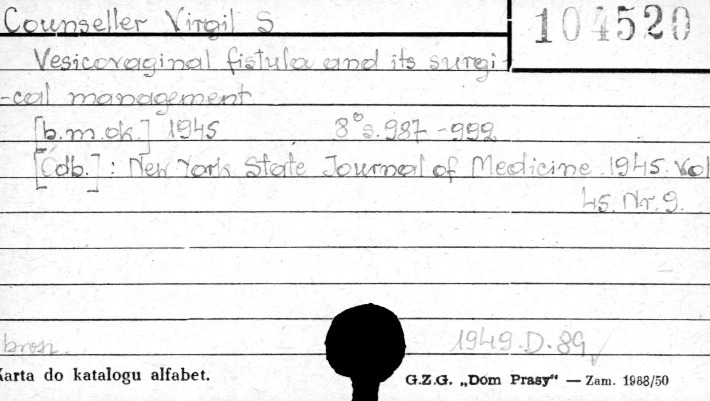 Counseller Virgil S
104520
Vesicovaginal fistula and its surgi
-cal management
[b.m.ok.] 1945 8° s. 987-992
[Odb.]: New York State Journal of Medicine. 1945. Vol
45. Nr. 9.
brosz. 1949.D.89
Karta do katalogu alfabet. G.Z.G. „Dom Prasy" — Zam. 1988/50